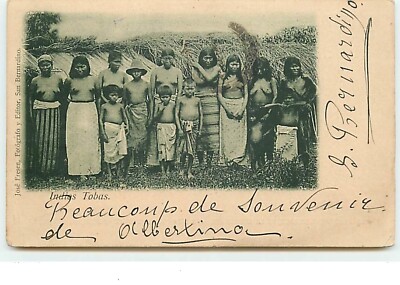 José Fresen, Fotógrafo y Editor, San Bernardino.
Indios Tobas.
Beaucoup de Souvenir
de Albertina.
S. Bernardino